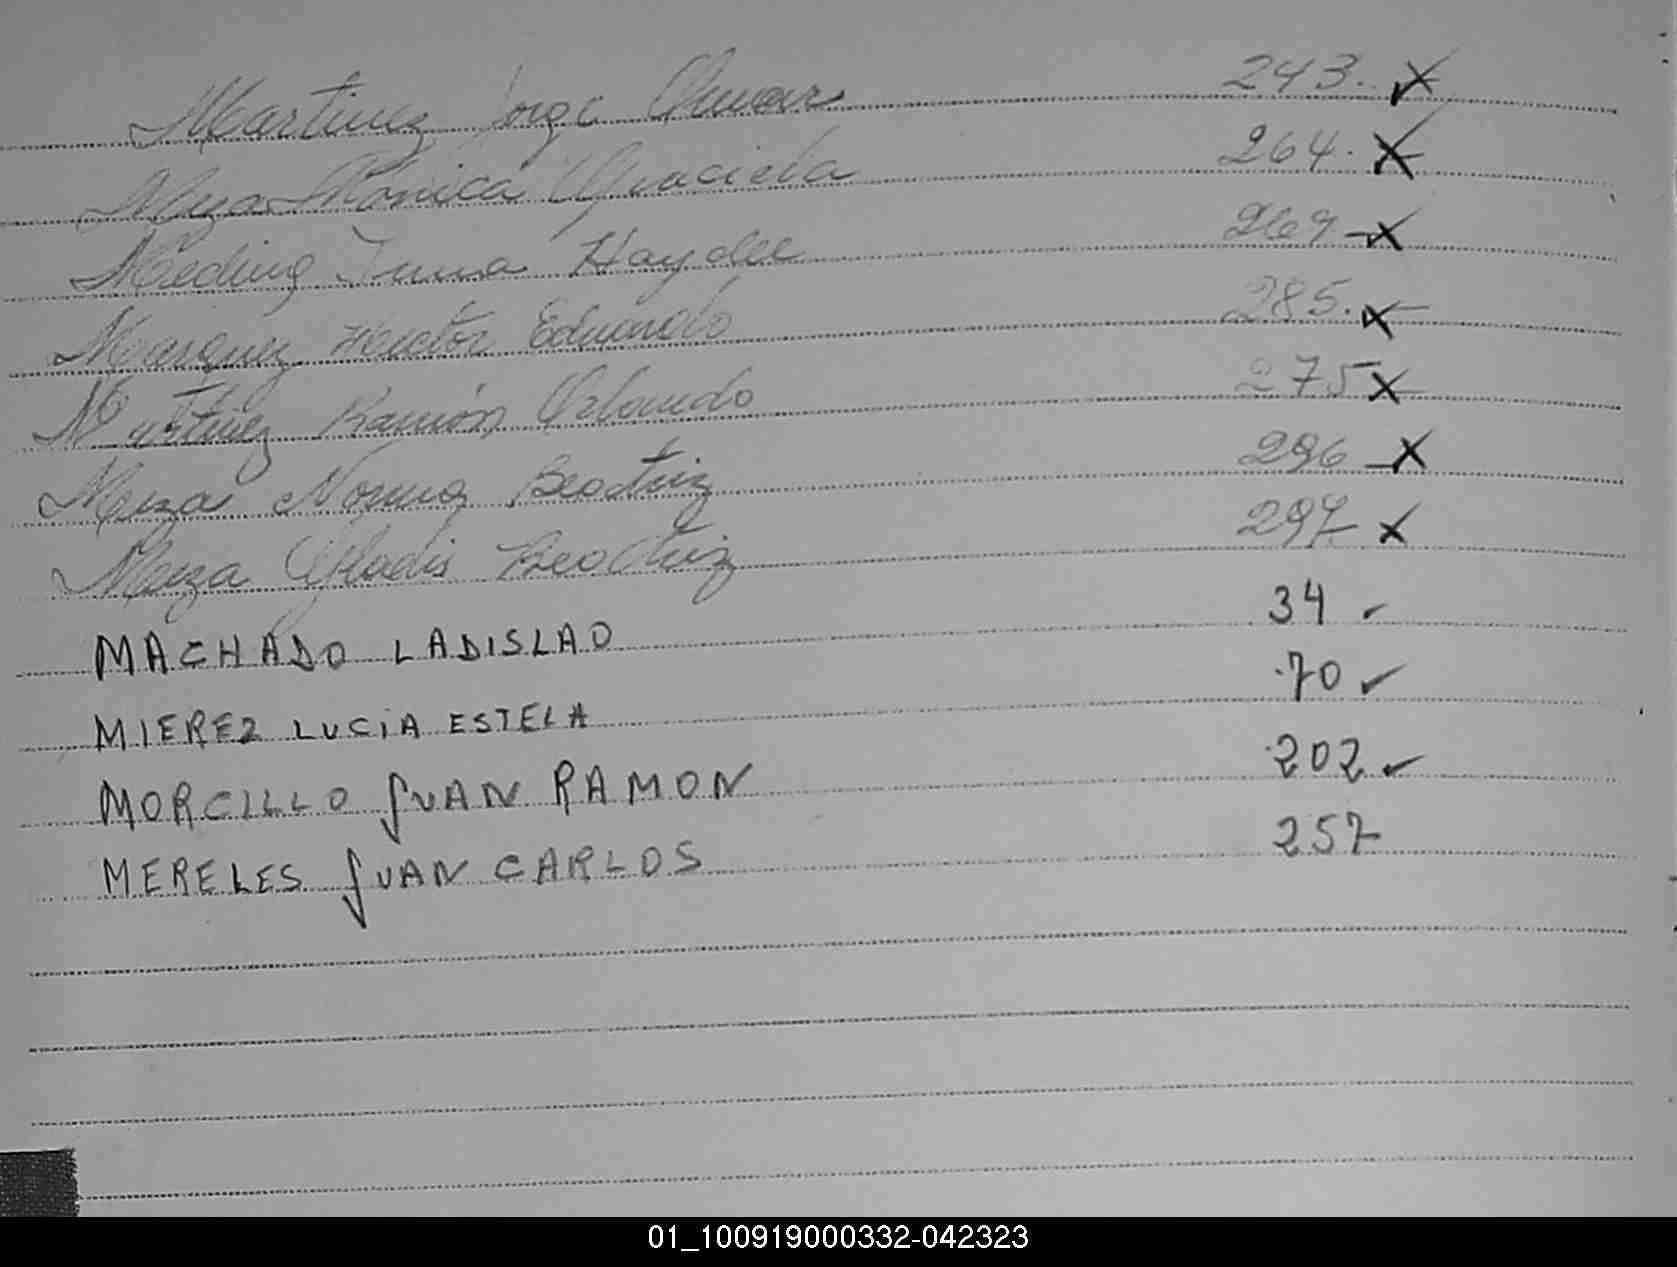 Martinez Jorge Omar 243. x
Meza Monica Graciela 264. x
Medina Irma Haydee 269 - x
Marquez Hector Eduardo 285. x
Martinez Ramón Orlando 275 x
Meza Norma Beatriz 296 - x
Meza Gladis Beatriz 297 x
MACHADO LADISLAO 34 ✓
MIEREZ LUCIA ESTELA 70 ✓
MORCILLO JUAN RAMON 202 ✓
MERELES JUAN CARLOS 257
01_100919000332-042323